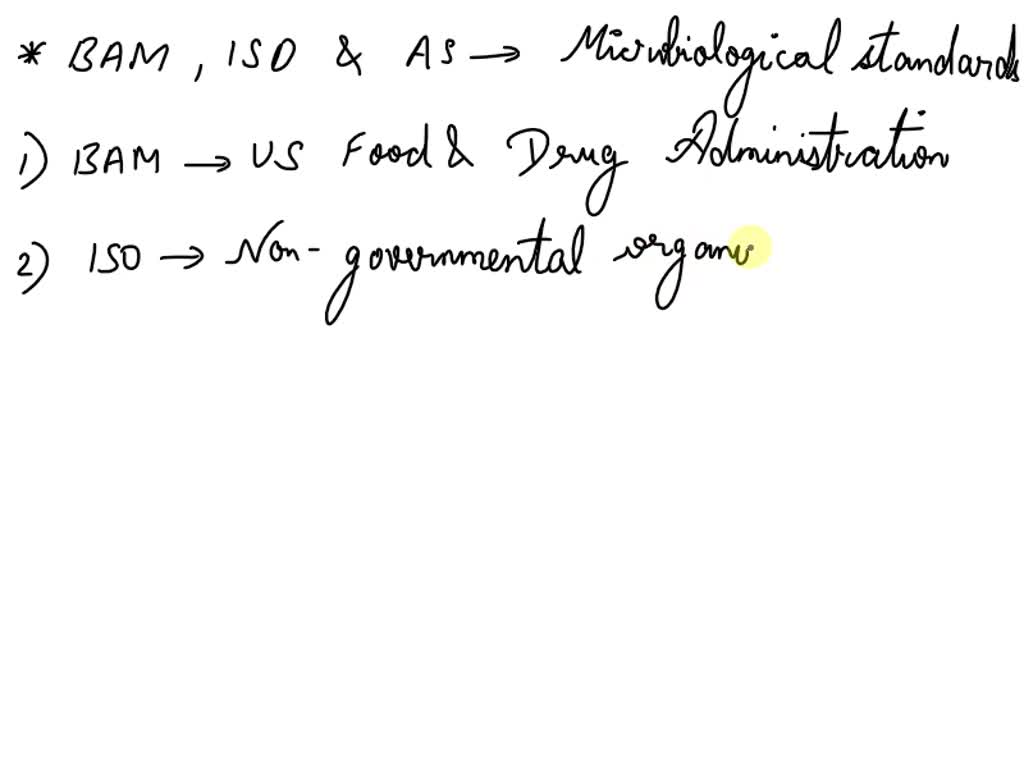 * BAM, ISO & AS → Microbiological standards
1) BAM → US Food & Drug Administration
2) ISO → Non-governmental organi